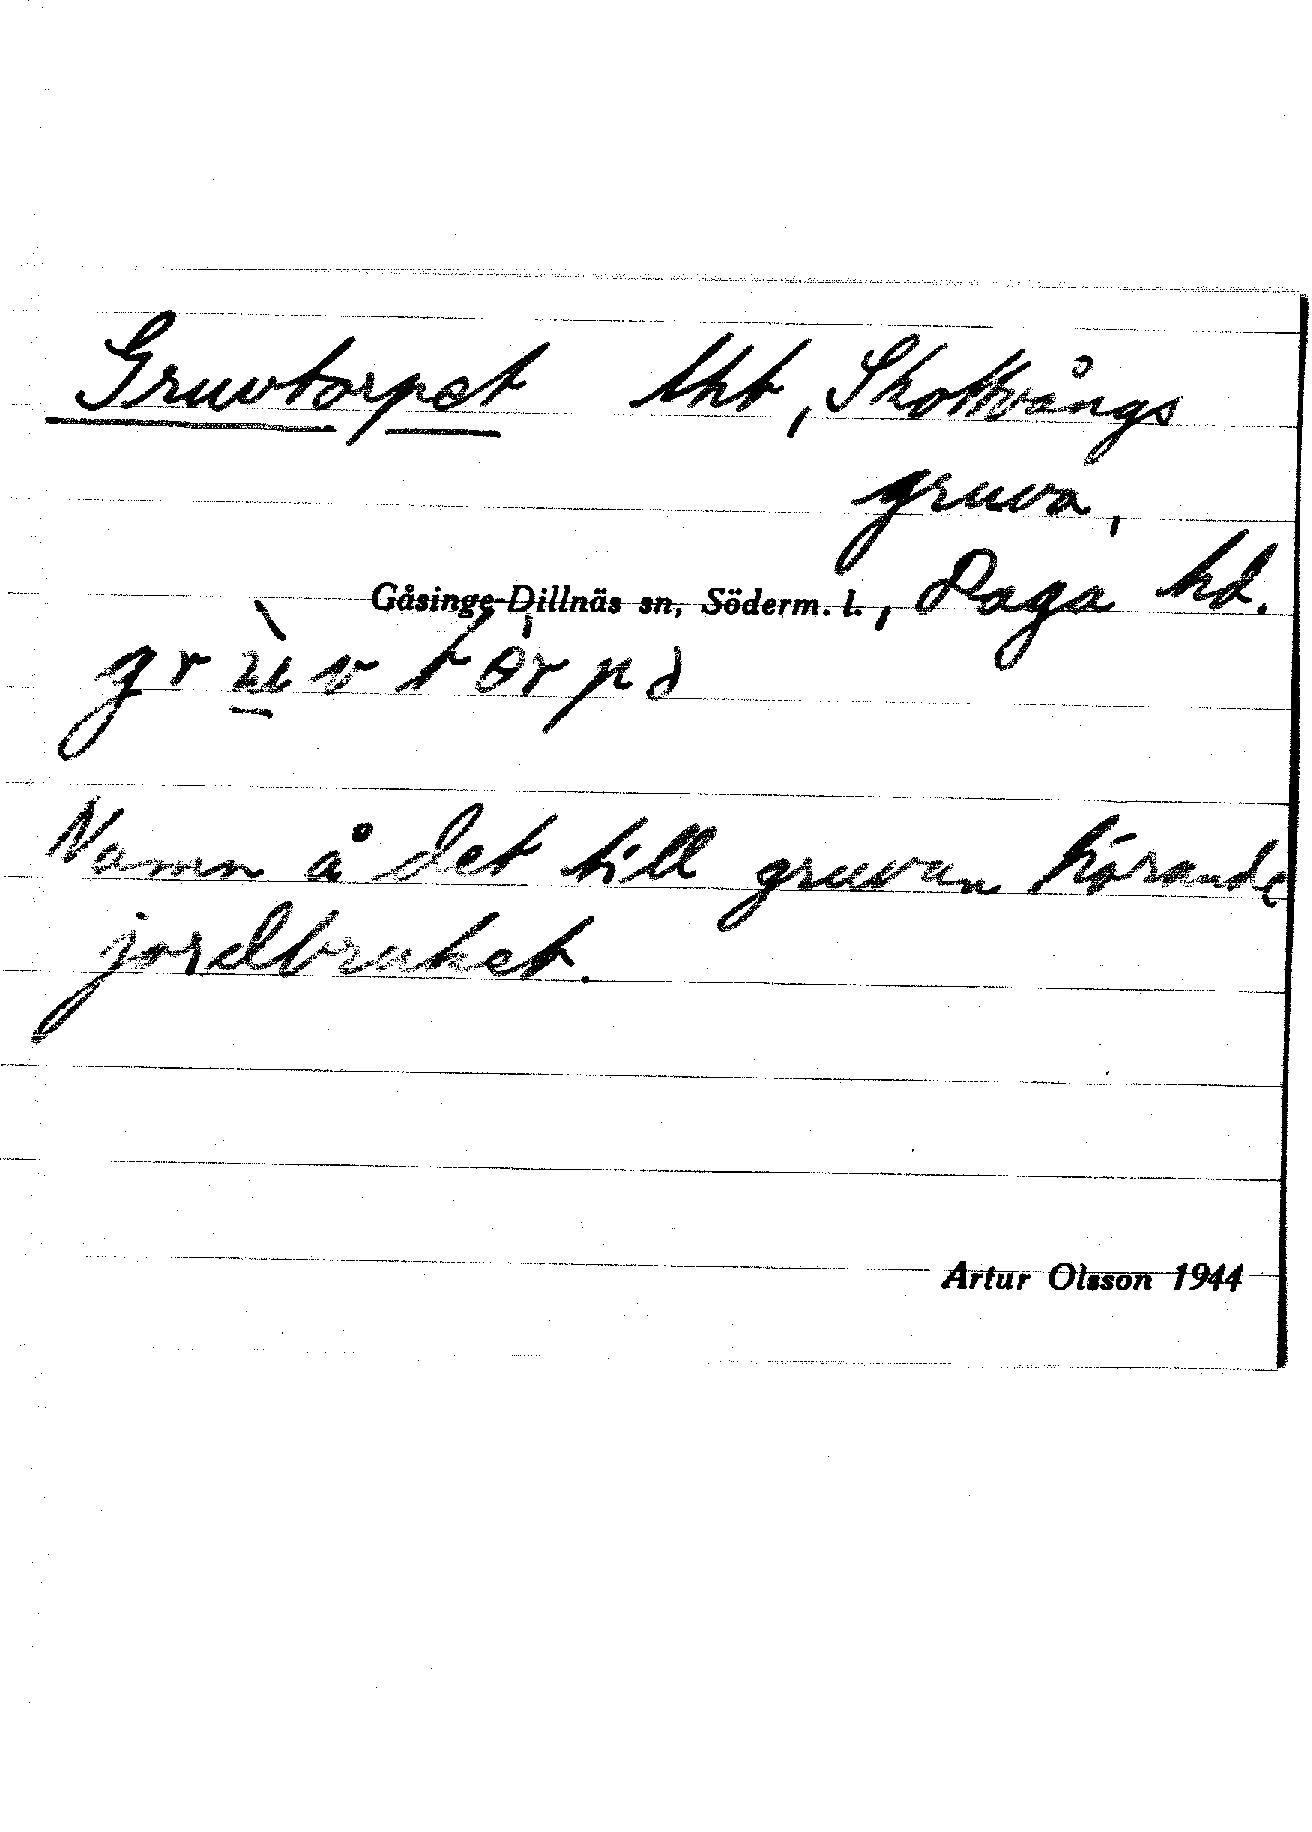 Gruvtorpet lht, Skottvångs
gruva,
Gåsinge-Dillnäs sn, Söderm. l., Daga hd.
Namn å det till gruvan hörande
jordbruket.
Artur Olsson 1944